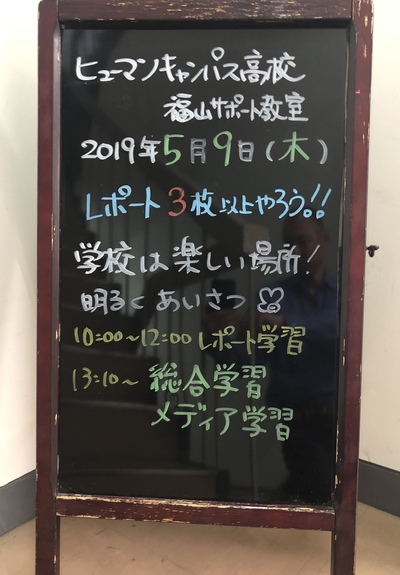 ヒューマンキャンパス高校
福山サポート教室
2019年5月9日(木)
レポート3枚以上やろう!!
学校は楽しい場所!
明るくあいさつ
10:00~12:00 レポート学習
13:10~ 総合学習
メディア学習